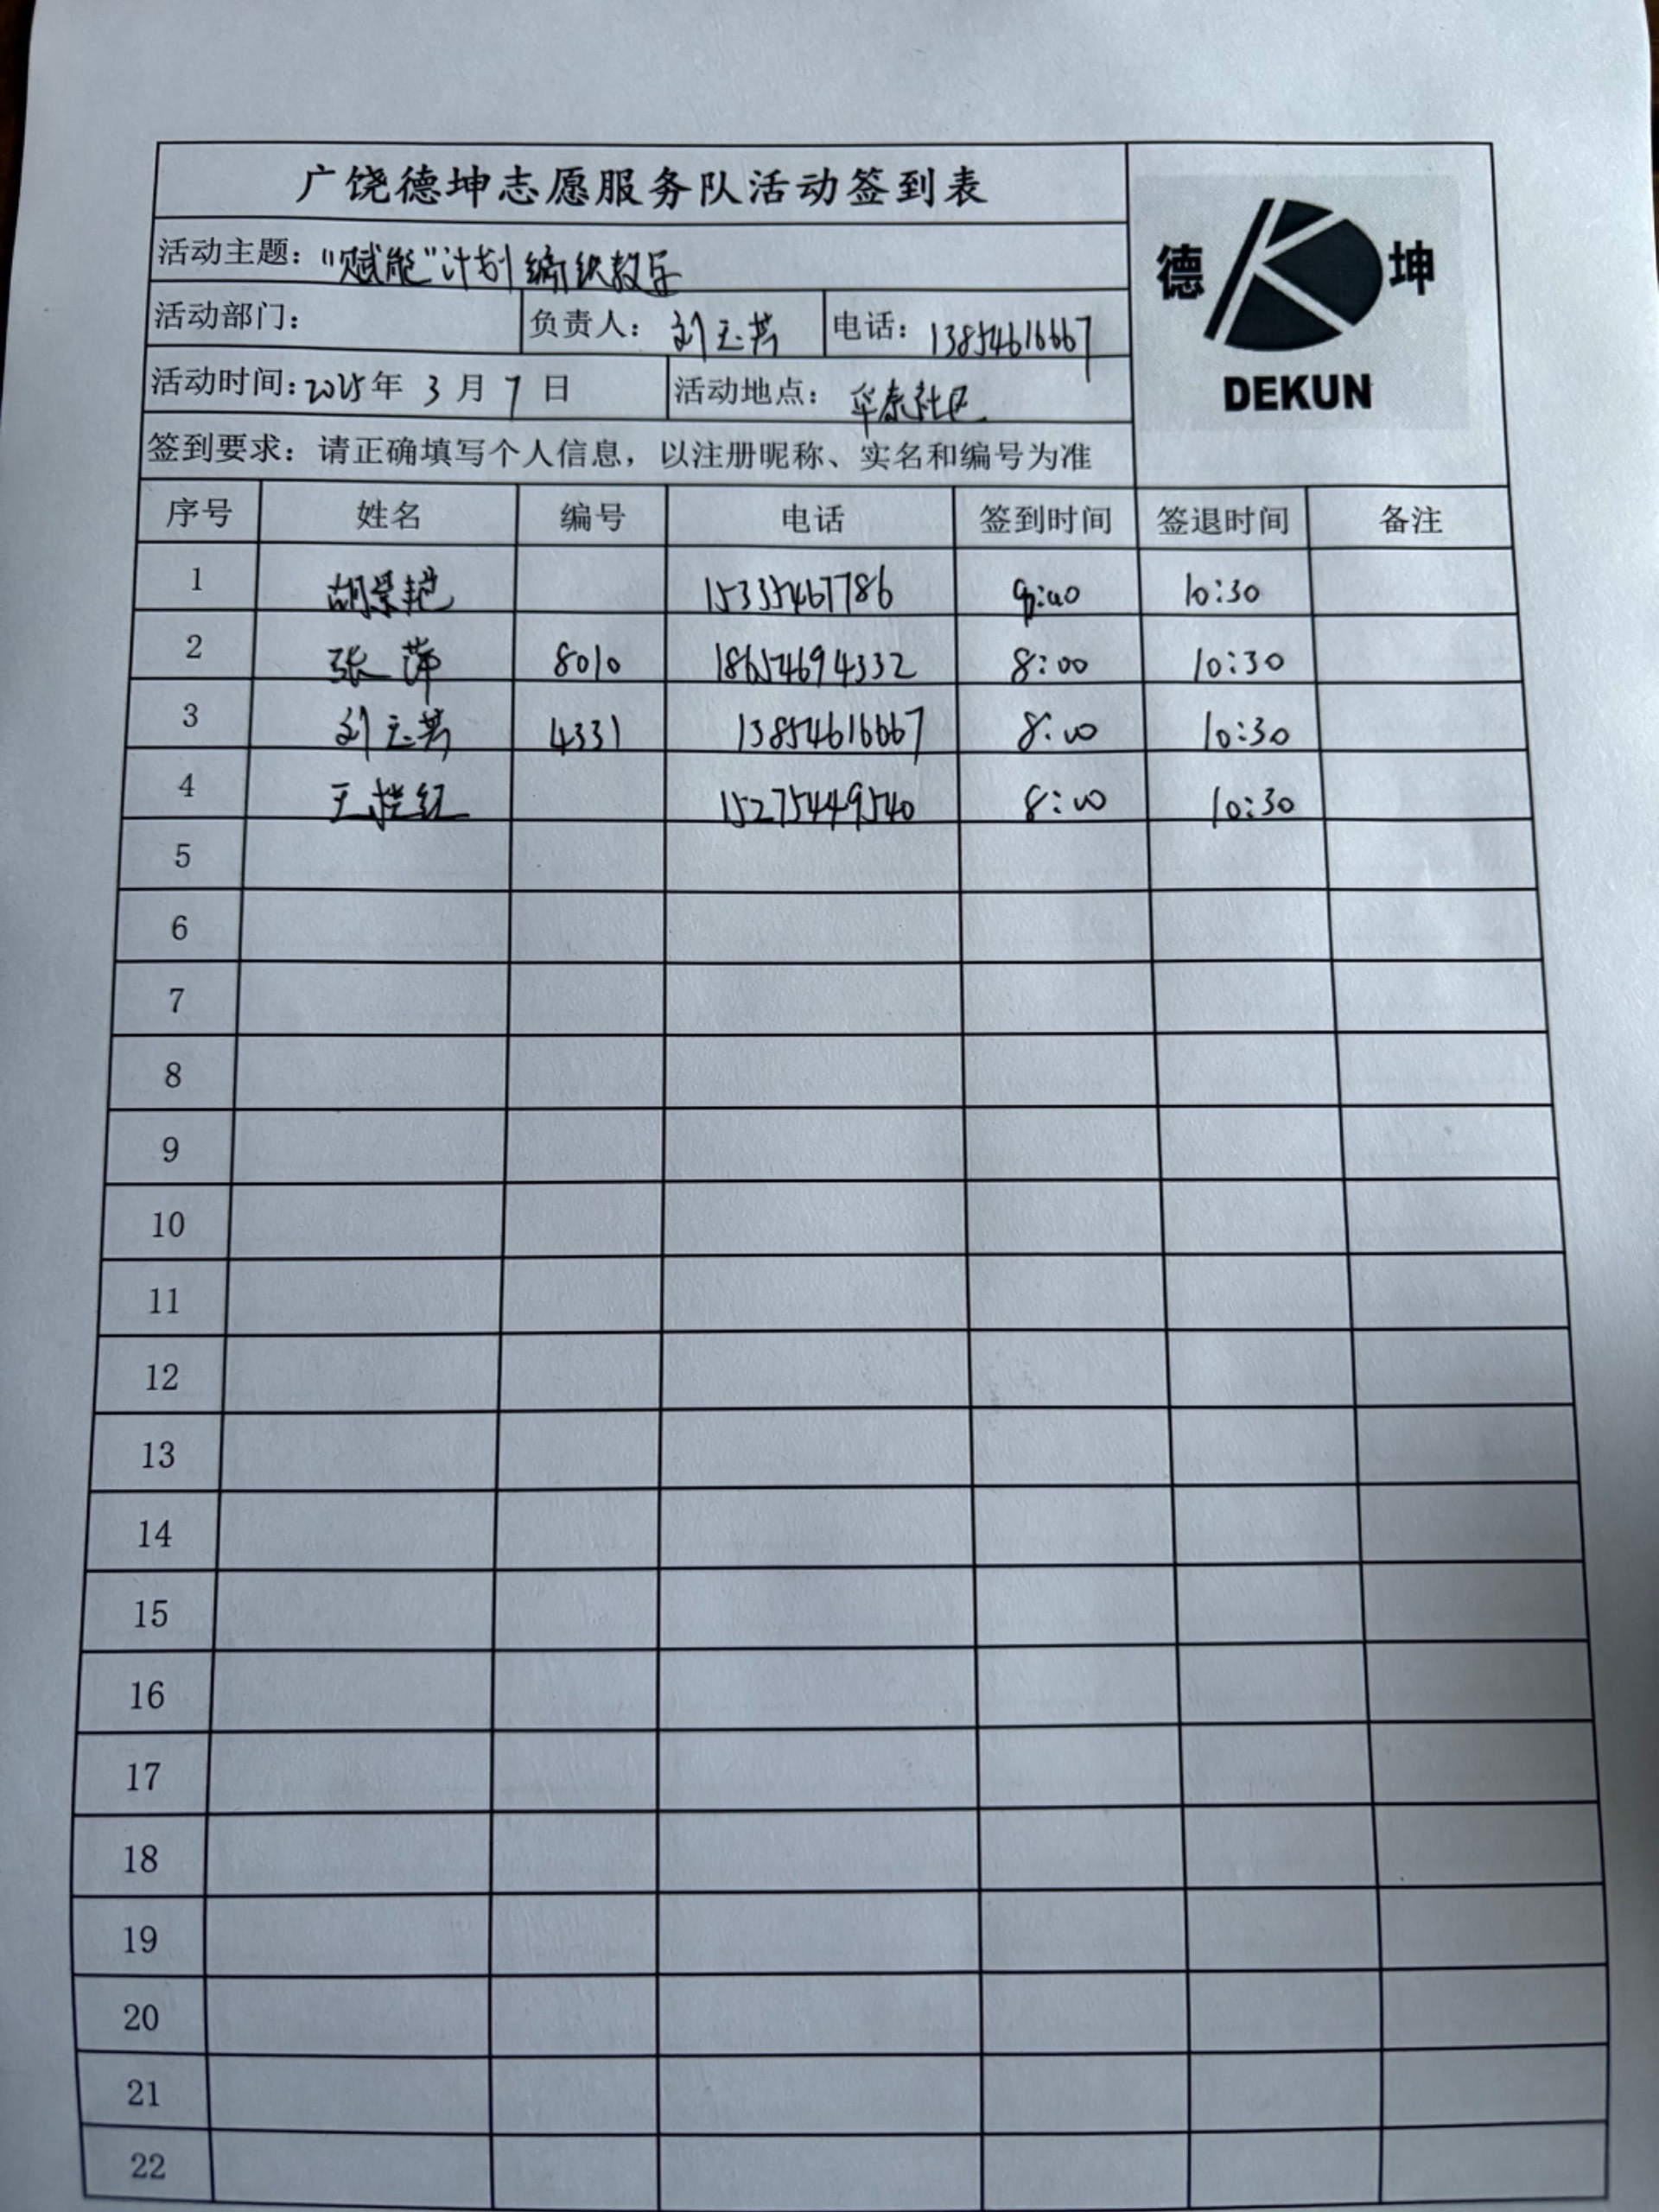 广饶德坤志愿服务队活动签到表
德 坤
DEKUN
活动主题："赋能"计划编织教学
活动部门： 负责人：刘玉芳 电话：13854616667
活动时间：2025年 3 月 7 日 活动地点：华泰社区
签到要求：请正确填写个人信息，以注册昵称、实名和编号为准
序号 姓名 编号 电话 签到时间 签退时间 备注
1 胡景艳 15335467786 10:30
2 张萍 8010 18654694332 8:00 10:30
3 刘玉芳 4331 13854616667 8:00 10:30
4 王 红 15275449540 8:00 10:30
5
6
7
8
9
10
11
12
13
14
15
16
17
18
19
20
21
22